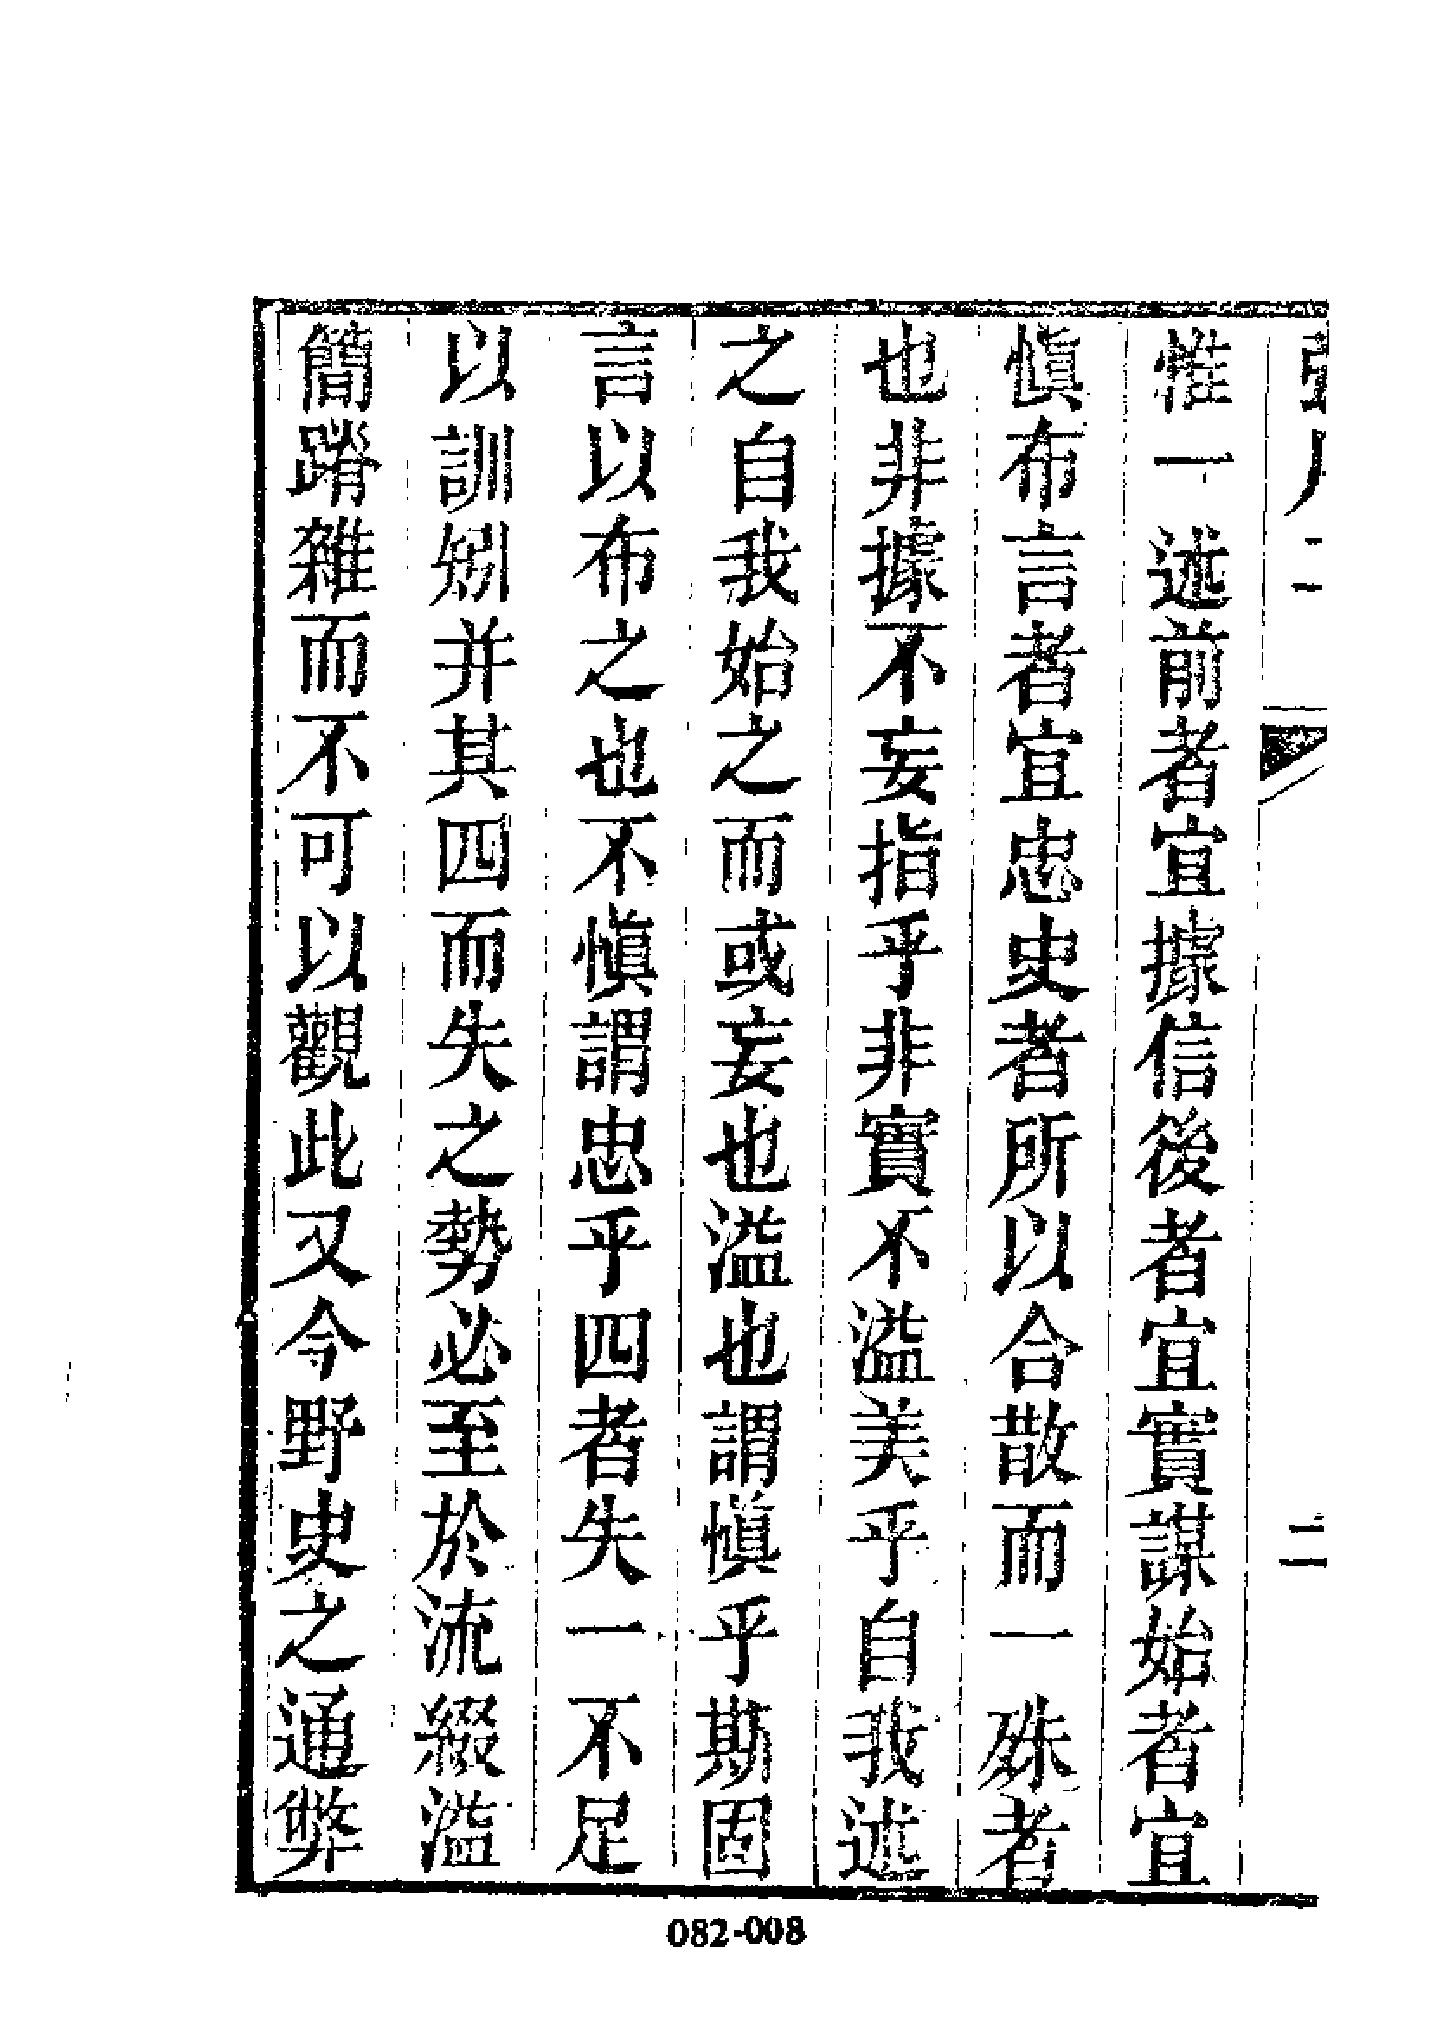 二
惟一述前者宜據信後者宜實謀始者宜
慎布言者宜忠史者所以合散而一殊者
也非據不妄指乎非實不溢美乎自我述
之自我始之而或妄也溢也謂慎乎斯固
言以布之也不慎謂忠乎四者失一不足
以訓矧并其四而失之勢必至於流綴濫
簡踳雜而不可以觀此又今野史之通弊
082-008